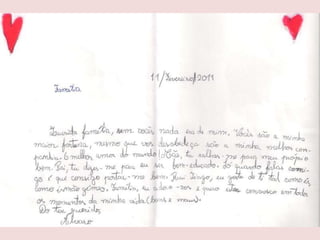 11/Fevereiro/2011
Família
Querida família, sem vocês nada eu de mim. Vocês são a minha
maior fortuna, mesmo que vos desobedeça são a minha melhor com-
panhia. O melhor amor do mundo! Mãe, tu ralhas-me para meu próprio
bem. Pai, tu dizes-me para eu ser bem-educado. Só quando falas comi-
go é que consigo portar-me bem. Rui Tiago, eu gosto de ti tal como és,
como irmão gémeo. Família, eu adoro-vos e quero estar convosco em todos
os momentos da minha vida (bons e maus).
Do teu querido,
Álvaro